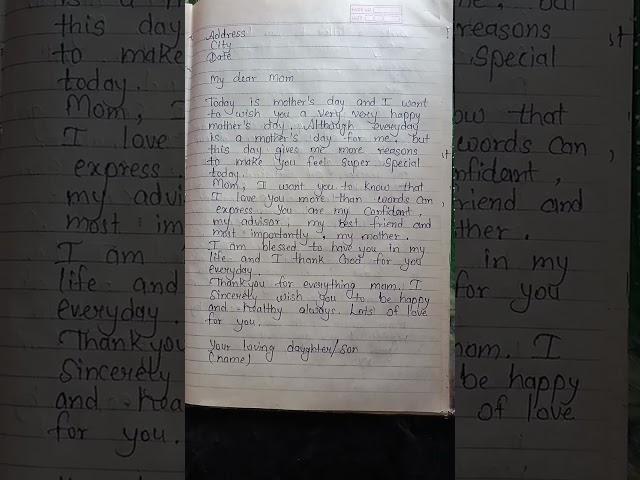 Address
City
Date
My dear Mom
Today is mother's day and I want
to wish you a very very happy
mother's day. Although everyday
is a mother's day for me, but
this day gives me more reasons
to make you feel super special
today.
Mom, I want you to know that
I love you more than words can
express. You are my confidant,
my advisor, my best friend and
most importantly, my mother.
I am blessed to have you in my
life and I thank God for you
everyday.
Thankyou for everything mom. I
sincerely wish you to be happy
and healthy always. Lots of love
for you.
Your loving daughter/son
(name)